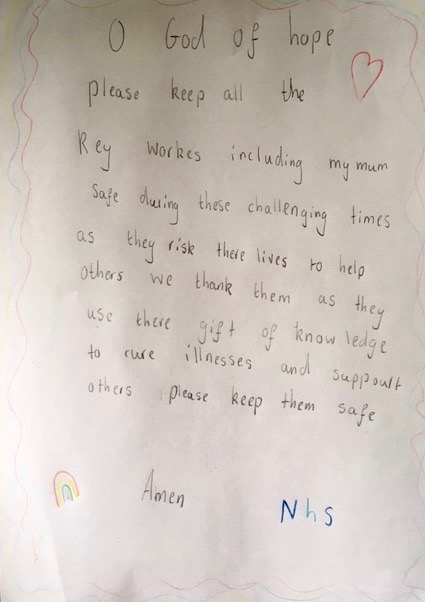 O God of hope
please keep all the
Key workes including my mum
safe during these challenging times
as they risk there lives to help
others we thank them as they
use there gift of knowledge
to cure illnesses and suppourt
others please keep them safe
Amen
Nhs